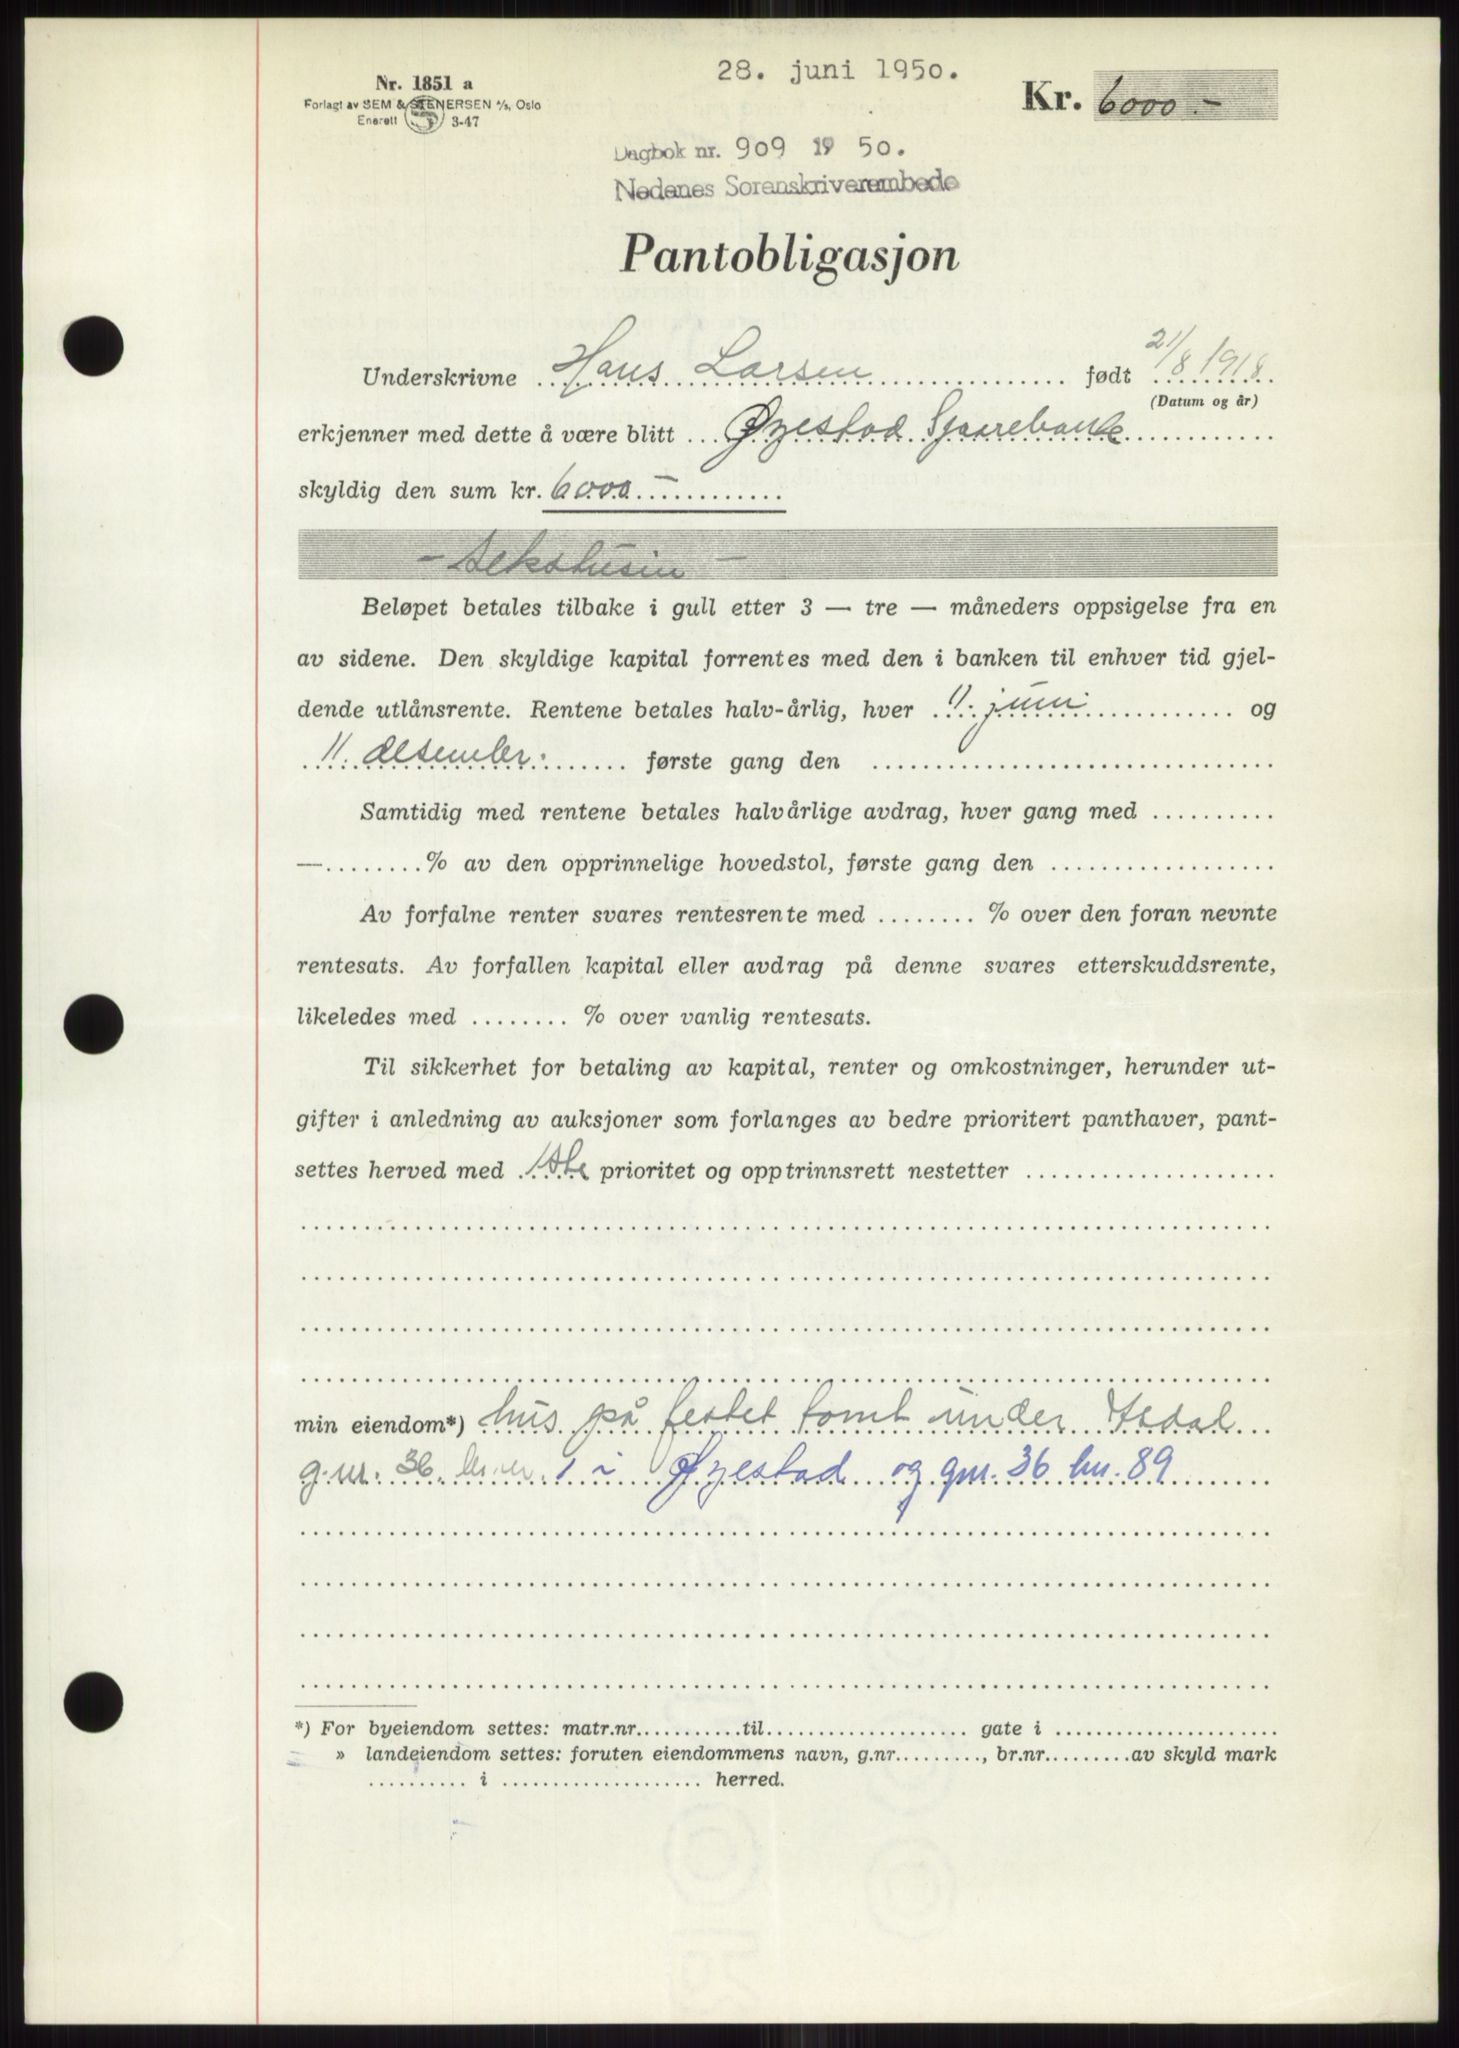 28. juni 1950.
Nr. 1851 a
Forlagt av SEM & STENERSEN A/S, Oslo
Enerett 3-47
Kr. 6000.-
Dagbok nr. 909 19 50.
Nedenes Sorenskriverembede
Pantobligasjon
Underskrivne Hans Larsen født 21/8 1918
(Datum og år)
erkjenner med dette å være blitt Øyestad Sparebank
skyldig den sum kr. 6000 -
- sekstusin -
Beløpet betales tilbake i gull etter 3 — tre — måneders oppsigelse fra en
av sidene. Den skyldige kapital forrentes med den i banken til enhver tid gjel-
dende utlånsrente. Rentene betales halv-årlig, hver 11. juni og
11. desember. første gang den
Samtidig med rentene betales halvårlige avdrag, hver gang med
— % av den opprinnelige hovedstol, første gang den
Av forfalne renter svares rentesrente med % over den foran nevnte
rentesats. Av forfallen kapital eller avdrag på denne svares etterskuddsrente,
likeledes med % over vanlig rentesats.
Til sikkerhet for betaling av kapital, renter og omkostninger, herunder ut-
gifter i anledning av auksjoner som forlanges av bedre prioritert panthaver, pant-
settes herved med 1ste prioritet og opptrinnsrett nestetter
min eiendom*) hus på festet tomt under Asdal
g.nr. 36 br.nr. 1 i Øyestad og gnr. 36 bnr. 89
*) For byeiendom settes: matr.nr. til gate i
» landeiendom settes: foruten eiendommens navn, g.nr. , br.nr. av skyld mark
i herred.